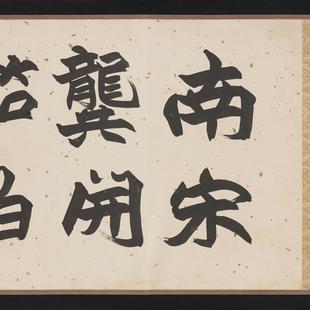 南宋
龔開